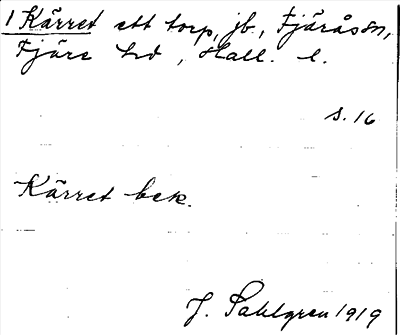 1 Kärret ett torp, jb., Fjärås sn,
Fjäre hd, Hall. l.
s. 16
Kärret bek.
J. Sahlgren 1919